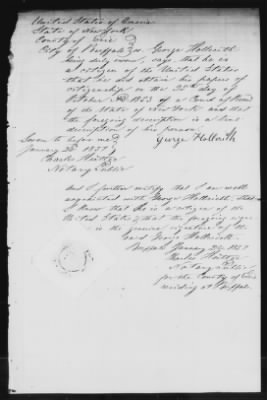 United States of America
State of New York
County of Erie
City of Buffalo ss George Hollwith
being duly sworn, says that he is
a citizen of the United States
that he did obtain his papers of
citizenship on the 25th day of
October 1853 of a Court of Record
of the State of New York and that
the foregoing description is a true
description of his person.
Sworn to before me George Hollwith
January 1857
Charles
Notary Public
And I further certify that I am well
acquainted with George Hollwith, that
I know that he is a citizen of the
United States & that the foregoing signature
is the genuine signature of the
said George Hollwith.
Buffalo January 1857
Charles
Notary Public
for the County of Erie
residing at Buffalo.